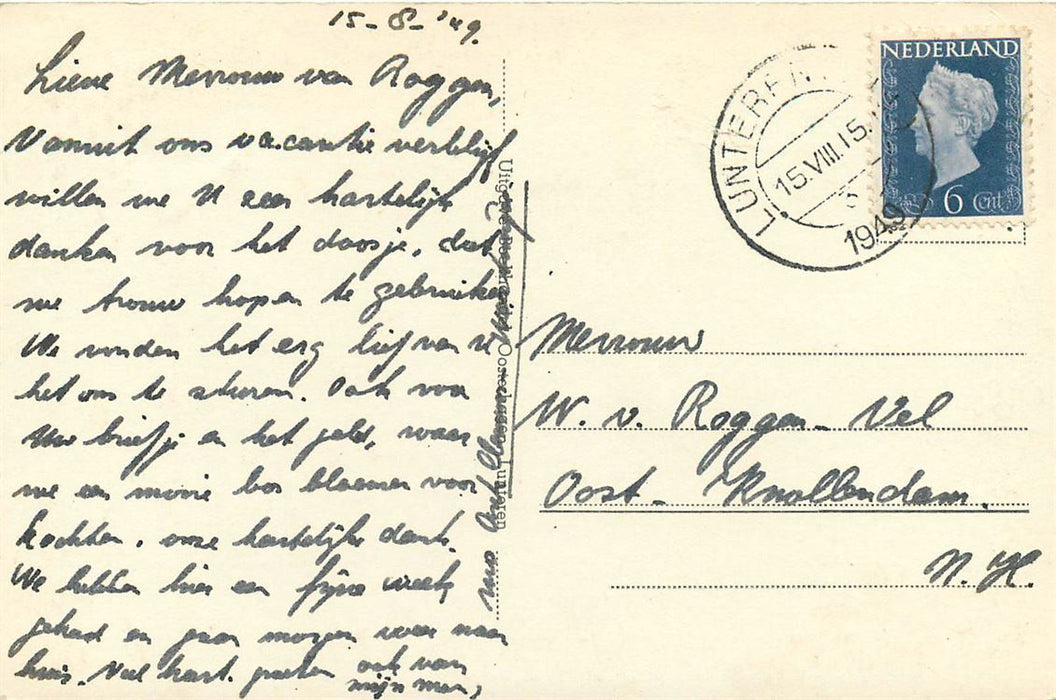 15-8-'49.
Lieve Mevrouw van Roggen,
Vanuit ons vacantie verblijf
willen we U zeer hartelijk
danken voor het doosje, dat
we trouw hopen te gebruiken
We vonden het erg lief van U
het ons te sturen. Ook voor
Uw briefje en het geld, waar
we een mooie bos bloemen voor
kochten, onze hartelijke dank.
We hebben hier een fijne week
gehad en gaan morgen weer naar
huis. Veel hart. groeten ook van
mijn man,
Uitgave Boekhandel Oosterlaagen Lunteren
NEDERLAND
6 Cnt
LUNTEREN
15.VIII.15.
1949
Mevrouw
W. v. Roggen-Vel
Oost-Knollendam.
N.H.